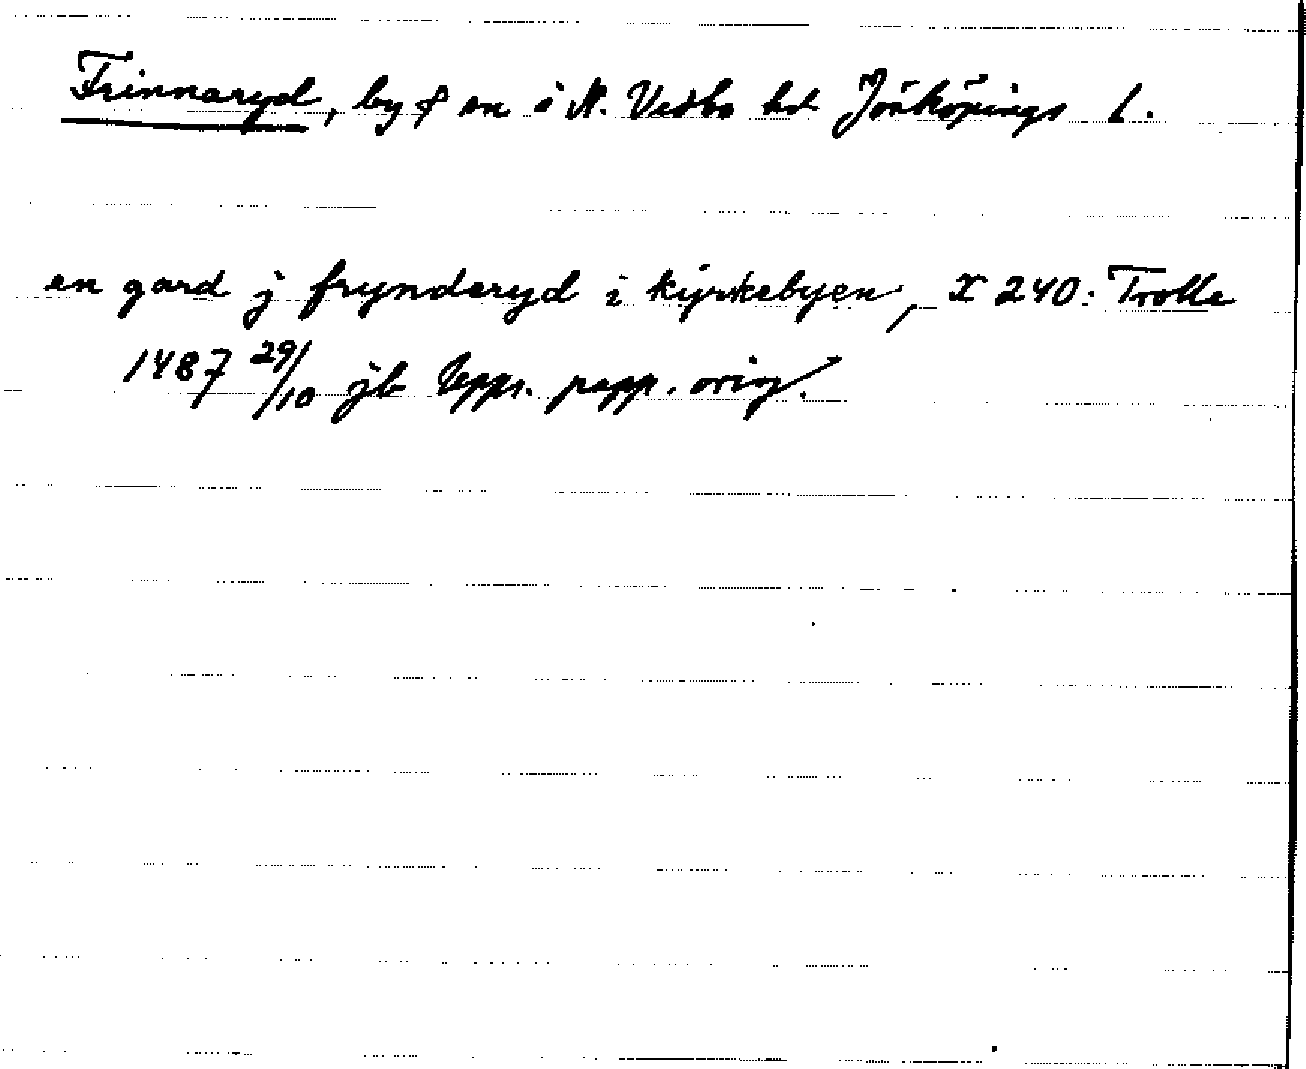 Frinnaryd, by & sn i N. Vedbo hd Jönköpings l.
en gard j frynderyd i kyrkebyen, X 240: Trolle
1487 29/10 jb Upps. papp. orig.